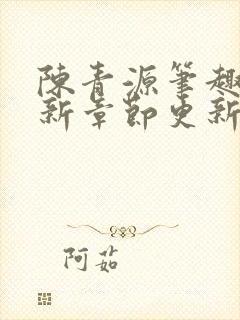 陳青源筆趣
新章節更新
阿茹